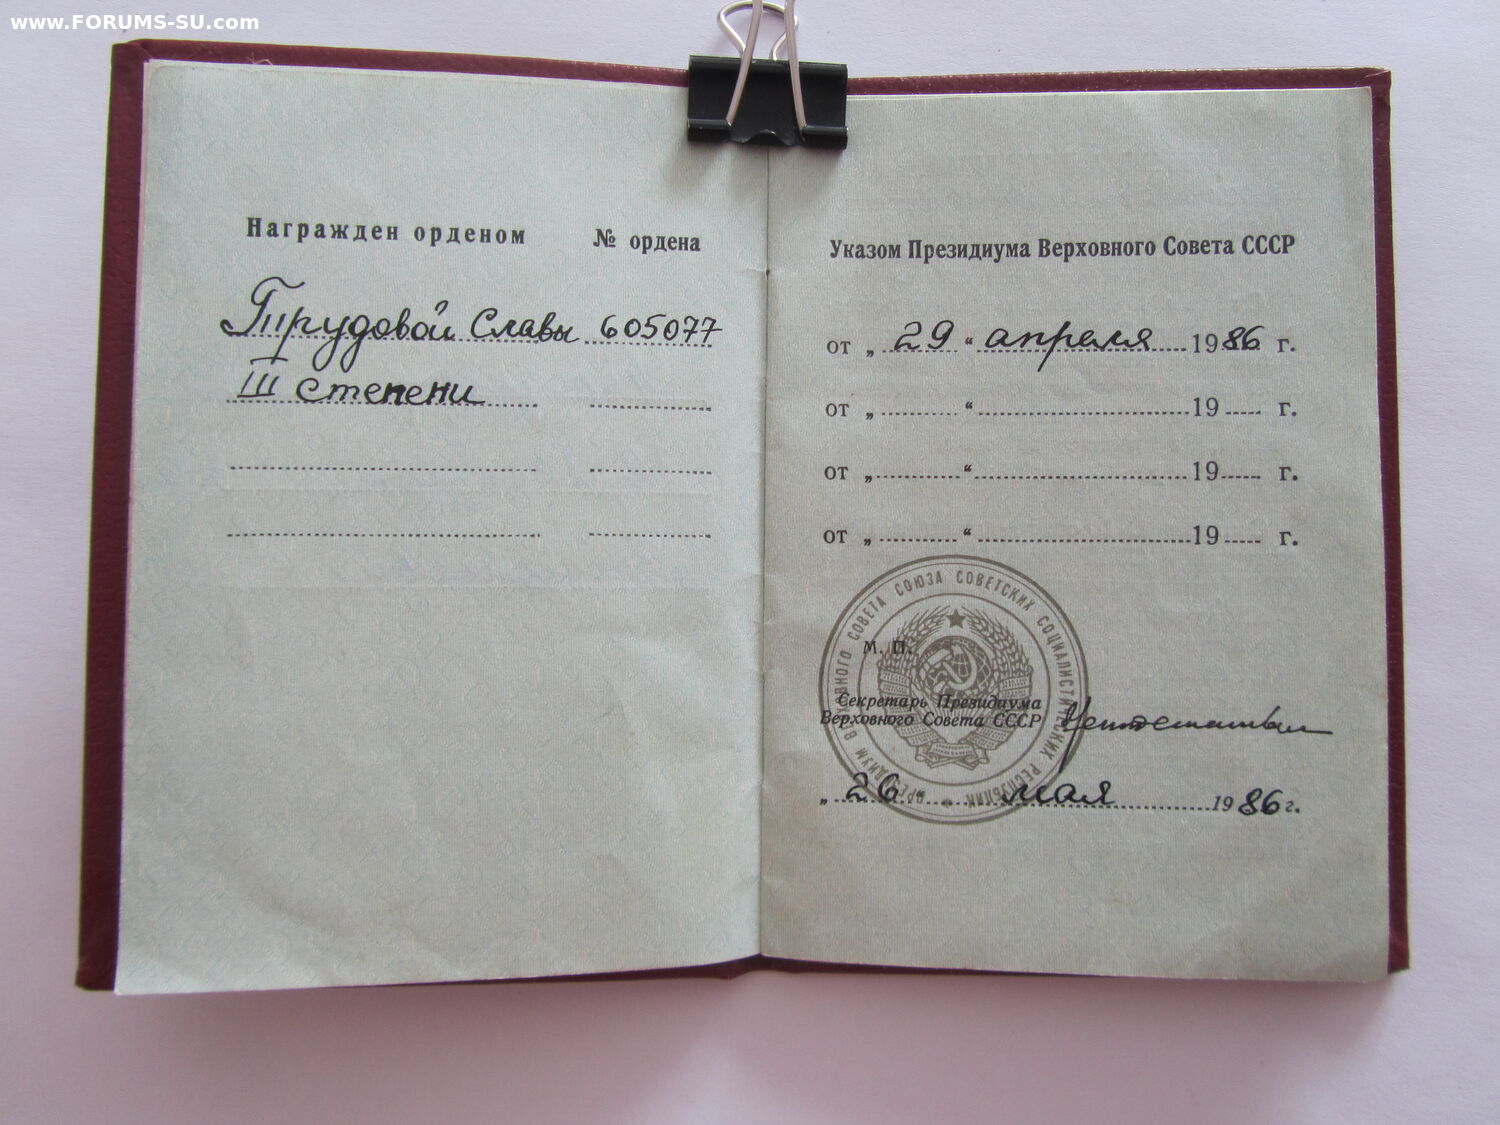 www.FORUMS-SU.com
Награжден орденом № ордена
Трудовой Славы 605077
III степени
Указом Президиума Верховного Совета СССР
от „ 29 “ апреля 1986 г.
от „ “ 19 г.
от „ “ 19 г.
от „ “ 19 г.
ПРЕЗИДИУМ ВЕРХОВНОГО СОВЕТА СОЮЗА СОВЕТСКИХ СОЦИАЛИСТИЧЕСКИХ РЕСПУБЛИК
М. П.
Секретарь Президиума
Верховного Совета СССР
„ 26 “ мая 1986 г.